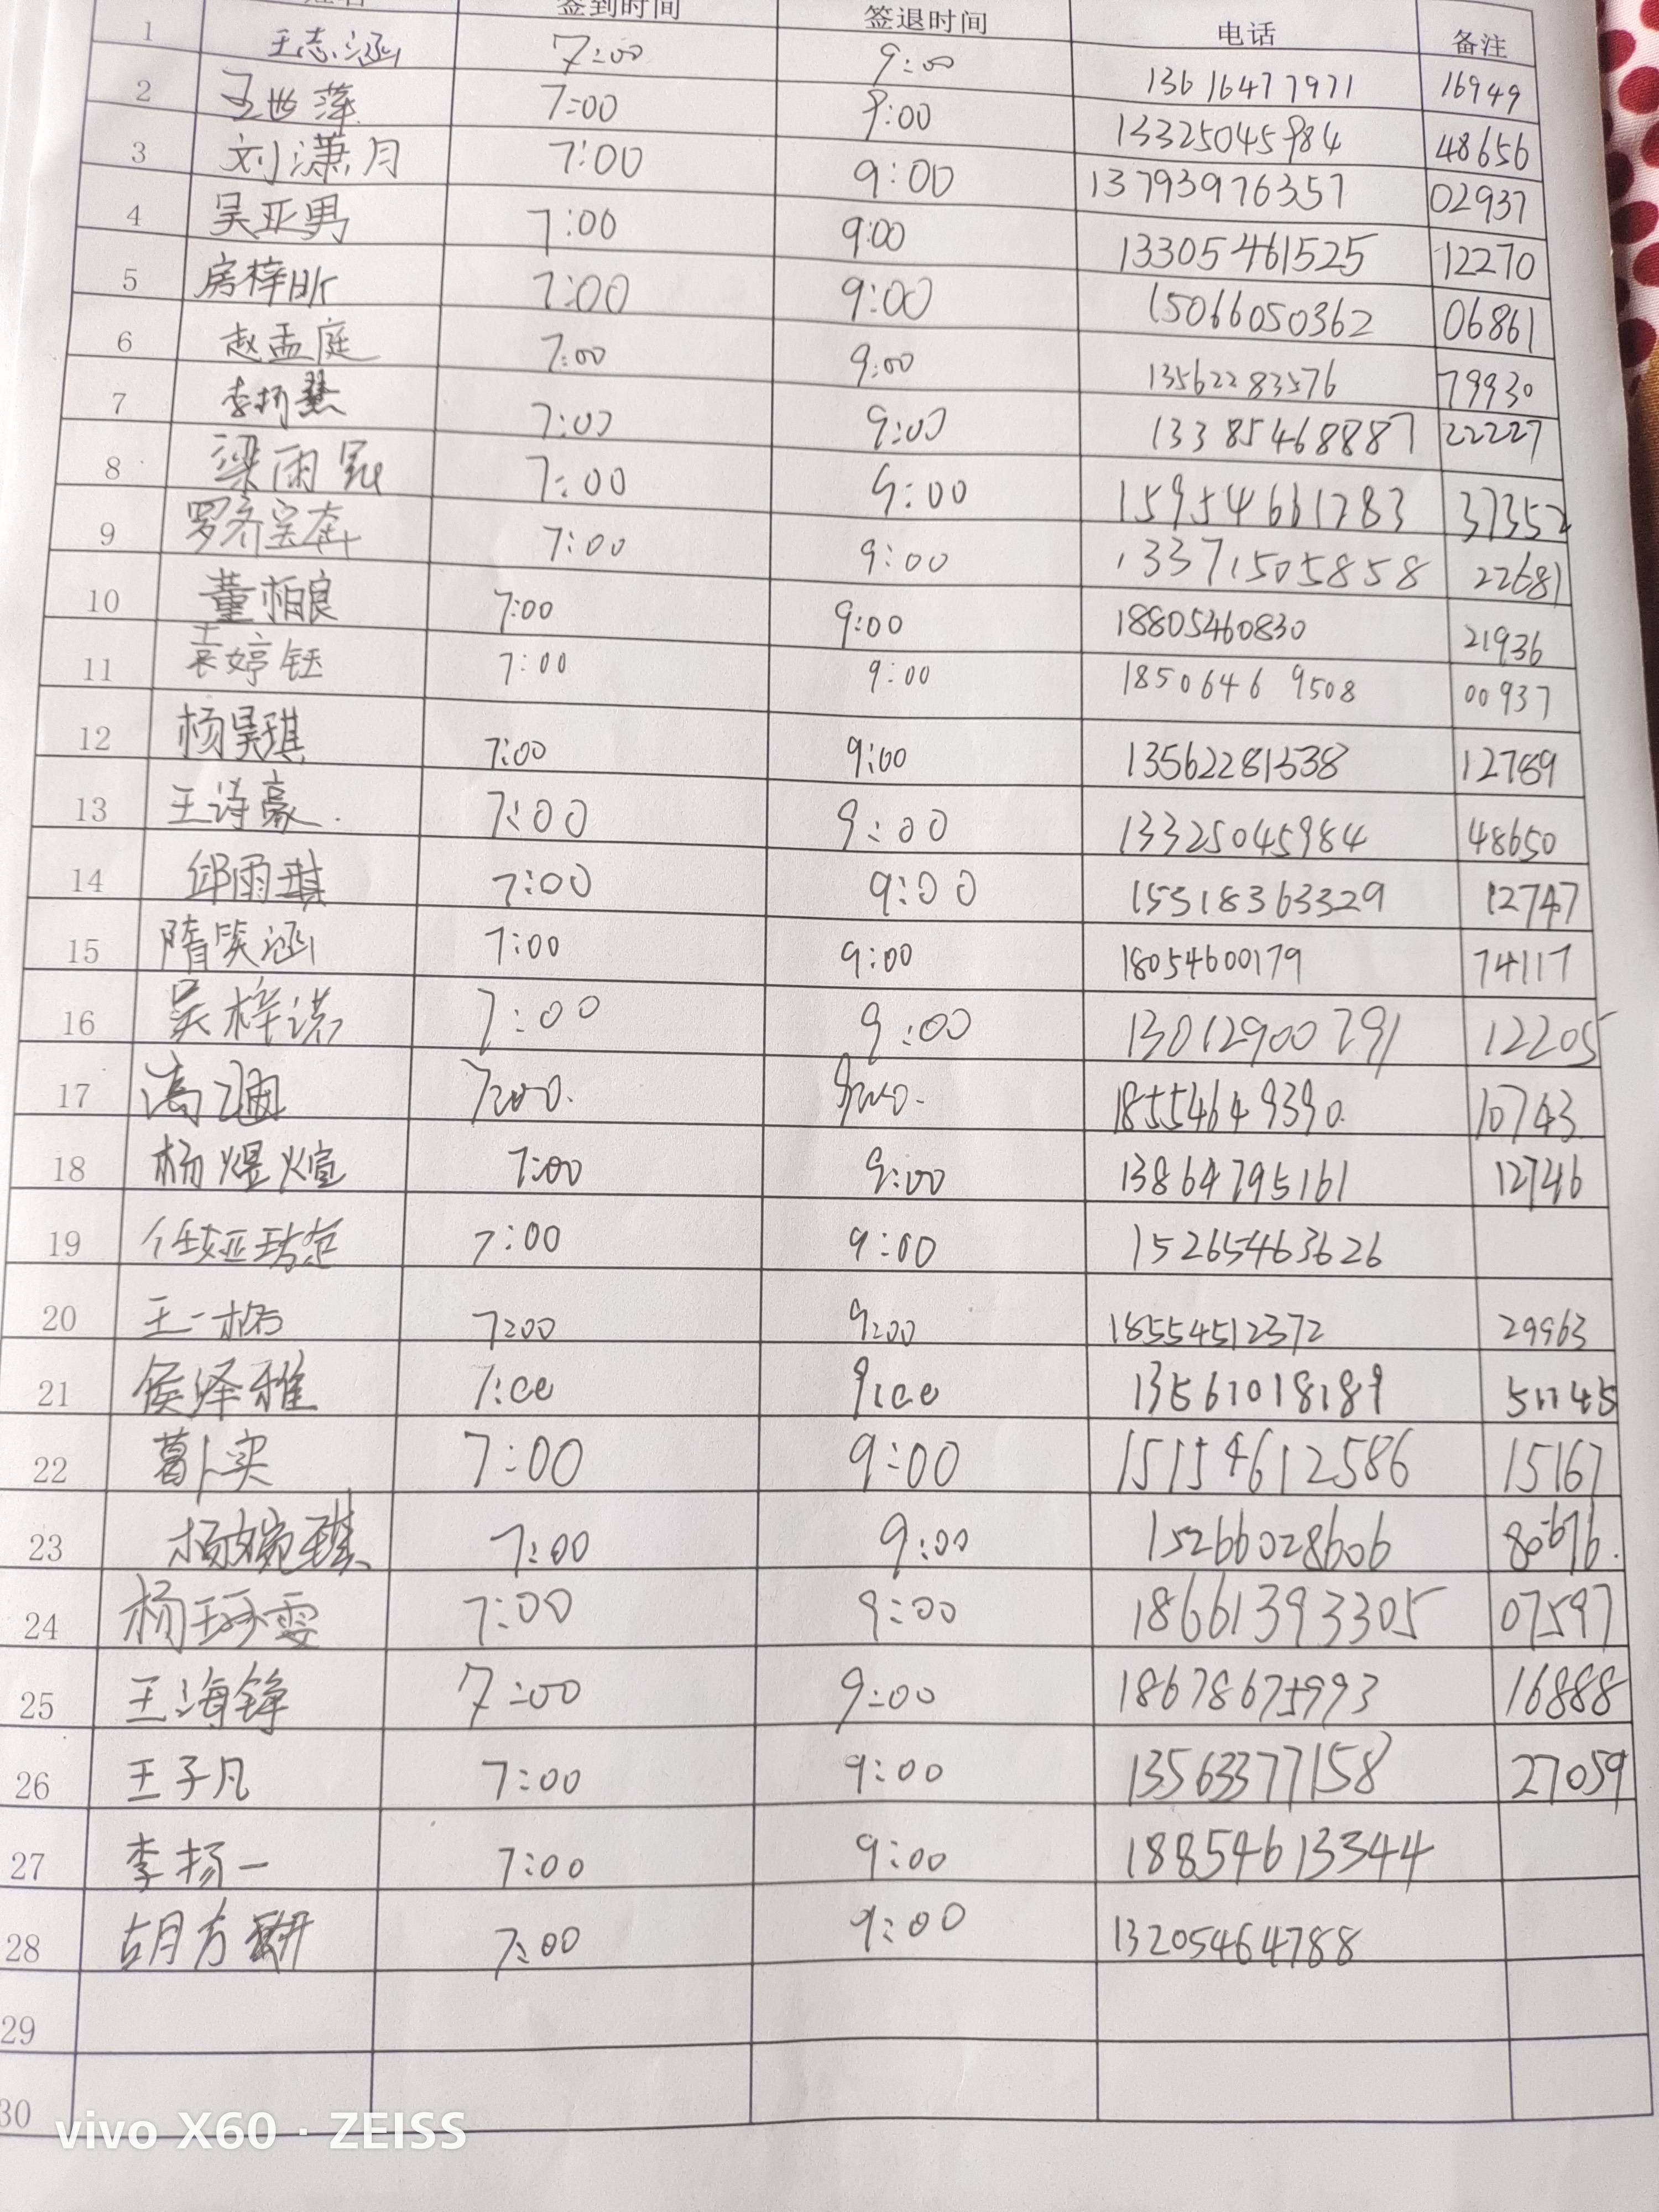 签到时间 签退时间 电话 备注
1 王志涵 7:00 9:00 13616477971 16949
2 王世萍 7:00 9:00 13325045984 48656
3 刘潇月 7:00 9:00 13793976357 02937
4 吴亚男 7:00 9:00 13305461525 12270
5 房梓昕 7:00 9:00 15066050362 06861
6 赵孟庭 7:00 9:00 13562283576 79930
7 李扬慧 7:00 9:00 13385468887 22227
8 梁雨 7:00 9:00 15954661783 37352
9 7:00 9:00 13371505858 22681
10 董柏良 7:00 9:00 18805460830 21936
11 袁婷钰 7:00 9:00 18506469508 00937
12 杨昊琪 7:00 9:00 13562281538 12789
13 王诗豪 7:00 9:00 13325045984 48650
14 邱雨琪 7:00 9:00 15318363329 12747
15 隋笑涵 7:00 9:00 18054600179 74117
16 吴梓诺 7:00 9:00 13012900791 12205
17 7:00 9:00 18554649390 10743
18 杨煜煊 7:00 9:00 13864795161 12746
19 7:00 9:00 15265463626
20 王一 7:00 9:00 18554512372 29963
21 侯泽雅 7:00 9:00 13561018189 51145
22 葛卜实 7:00 9:00 15154612586 15167
23 杨婉琪 7:00 9:00 15266028606 80676
24 杨珂雯 7:00 9:00 18661393305 07597
25 王海锋 7:00 9:00 18678675993 16888
26 王子凡 7:00 9:00 13563377158 27059
27 李扬一 7:00 9:00 18854613344
28 胡方妍 7:00 9:00 13205464788
29
30
vivo X60 · ZEISS